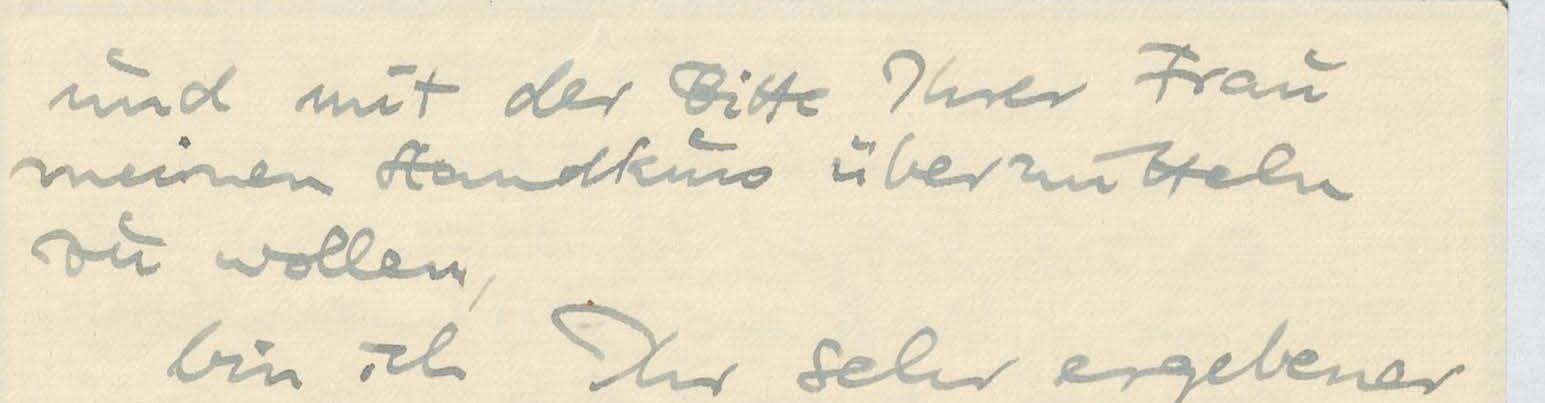 und mit der Bitte Ihrer Frau
meinen Handkuss übermitteln
zu wollen,
bin ich Ihr sehr ergebener